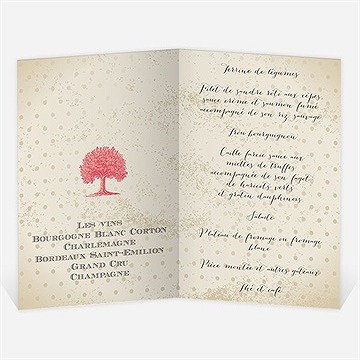 Les vins
Bourgogne Blanc Corton
Charlemagne
Bordeaux Saint-Emilion
Grand Cru
Champagne
Terrine de légumes
Filet de sandre rôti aux cèpes
sauce crème et saumon fumé
accompagné de son riz sauvage
Trou bourguignon
Caille farcie sauce aux
miettes de truffes
accompagnée de son fagot
de haricots verts
et gratin dauphinois
Salade
Plateau de fromage ou fromage
blanc
Pièce montée et autres gâteaux
Thé et café